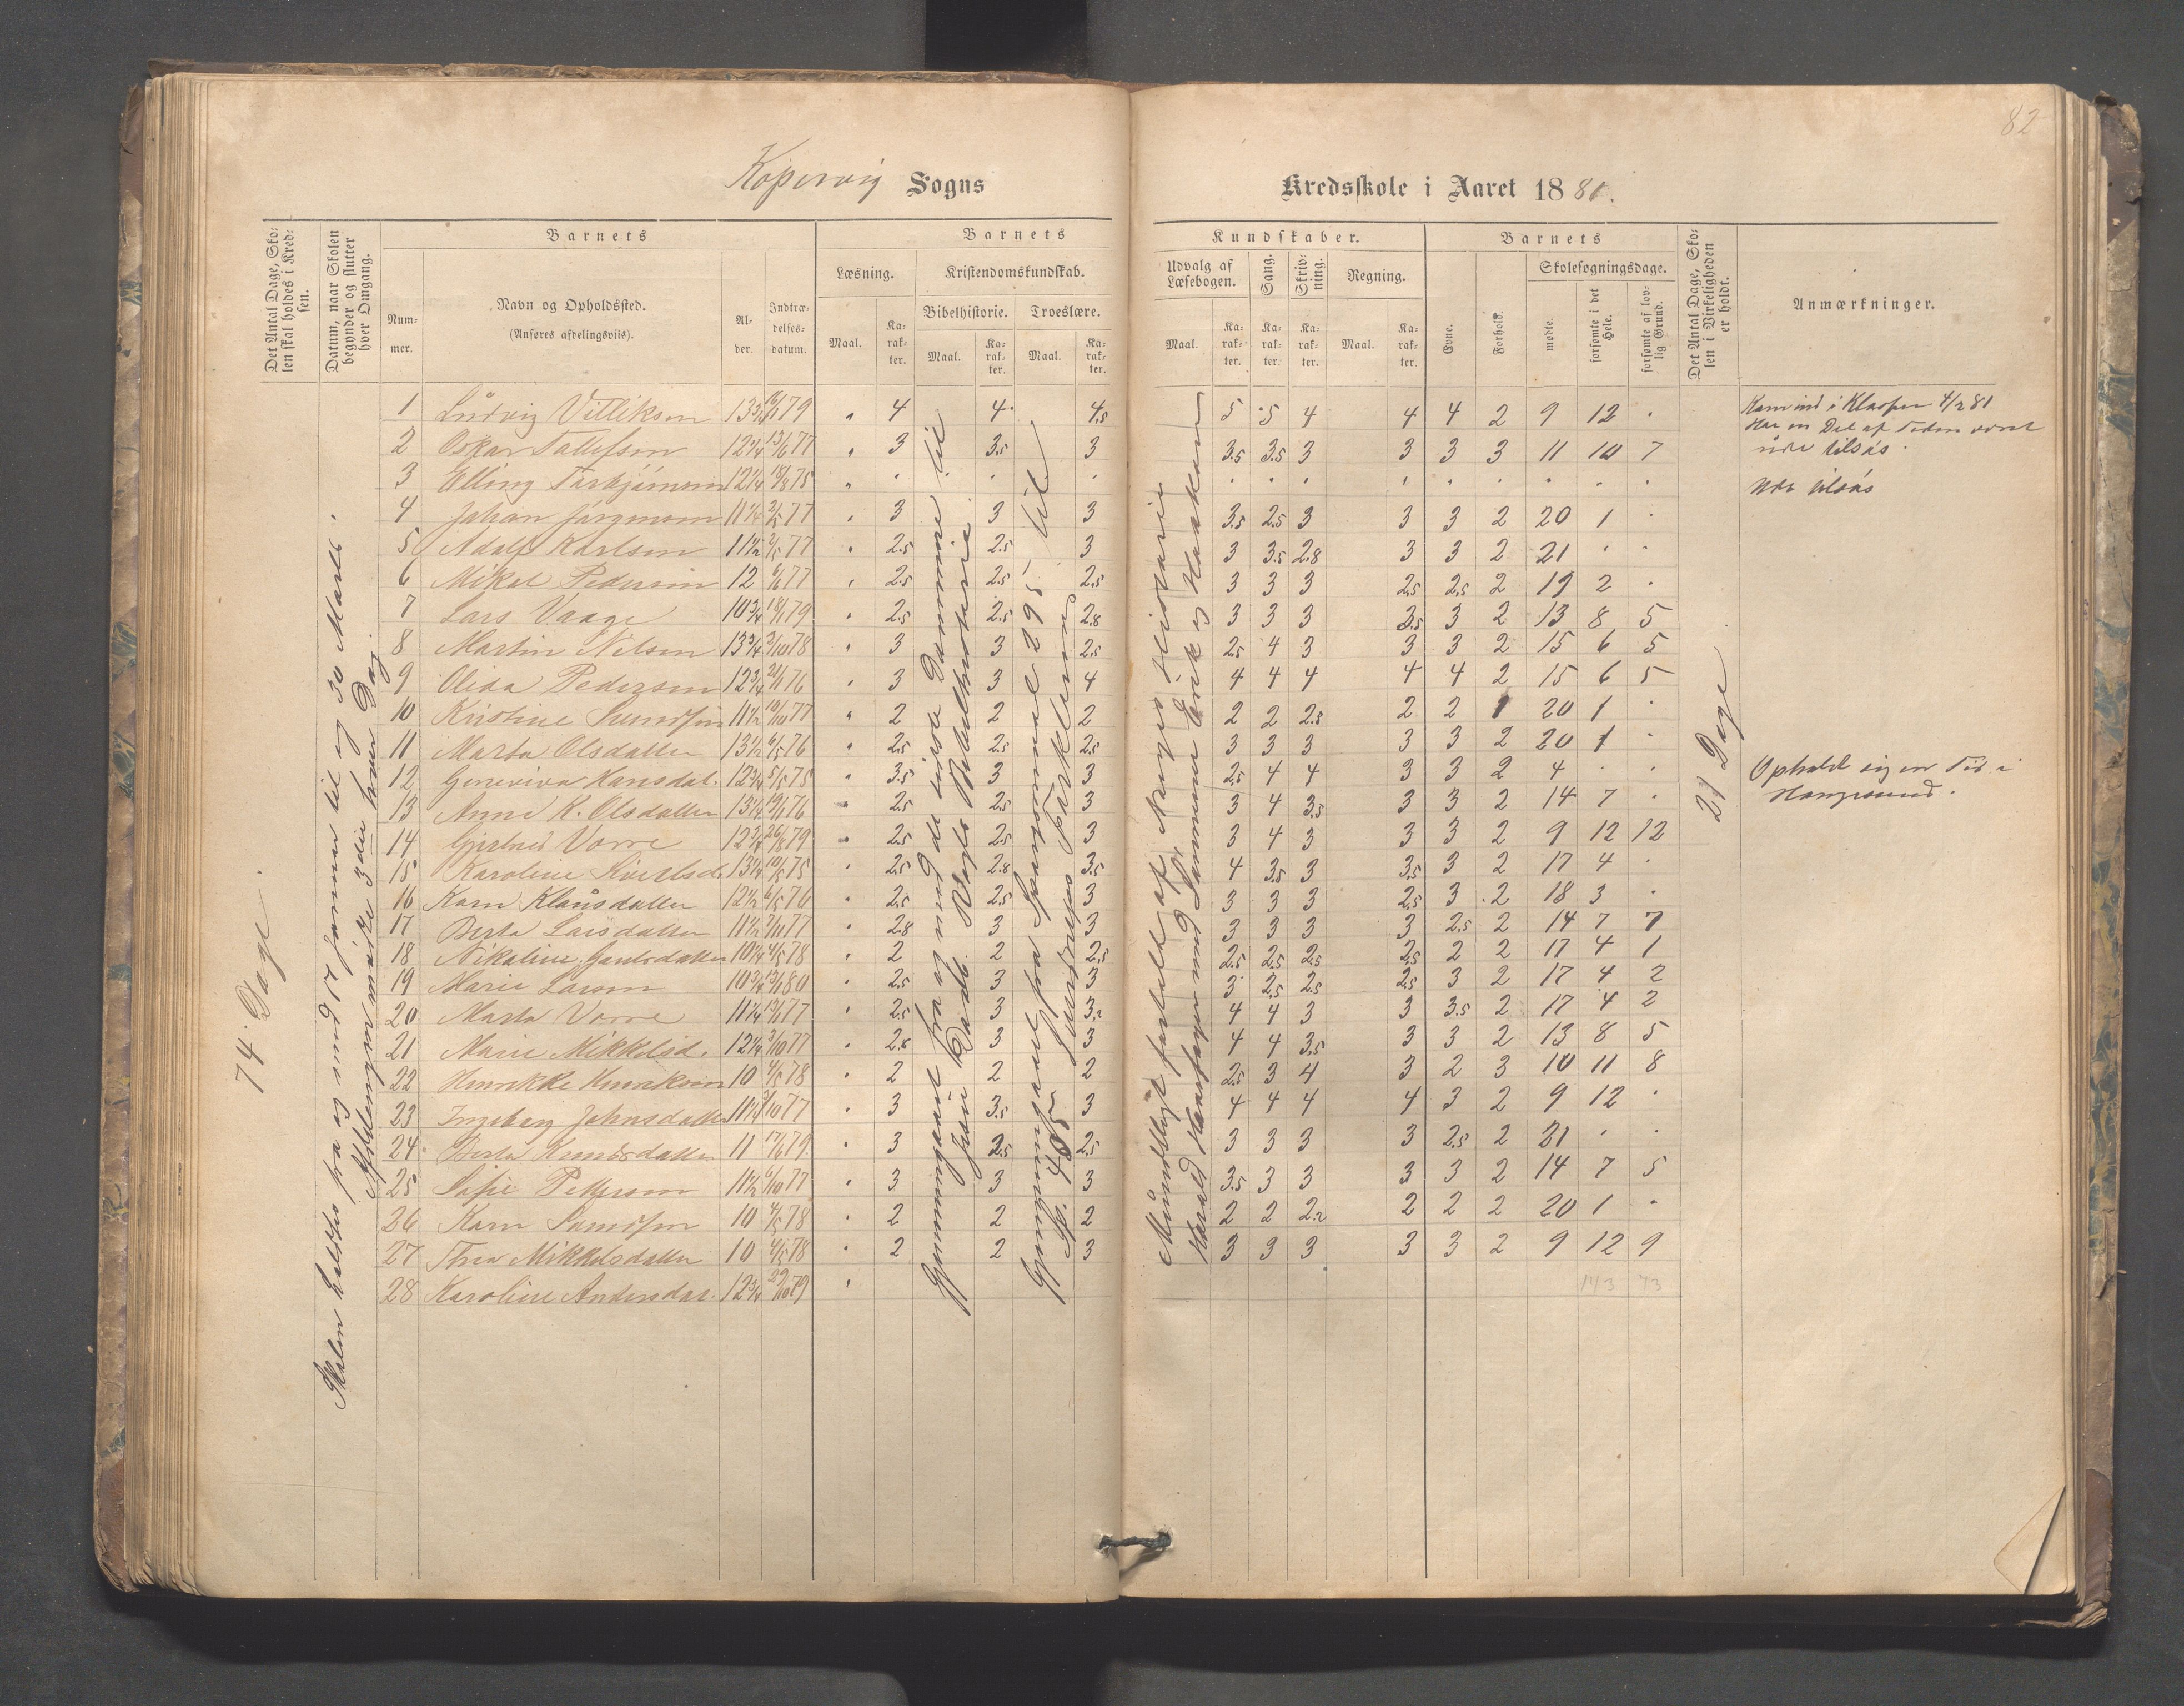 82
Kopervig Sogns Kredsskole i Aaret 1881.
Det Antal Dage, Skolen skal holdes i Kredsen.
Datum, naar Skolen begynder og slutter hver Omgang.
Barnets
Barnets
Kundskaber.
Barnets
Det Antal Dage, Skolen i Virkeligheden er holdt.
Anmærkninger.
Nummer.
Navn og Opholdssted.
(Anføres afdelingsviis).
Alder.
Indtrædelsesdatum.
Læsning.
Kristendomskundskab.
Bibelhistorie.
Troeslære.
Udvalg af Læsebogen.
Sang.
Skrivning.
Regning.
Evne.
Forhold.
Skolesøgningsdage.
mødte.
forsømte i det Hele.
forsømte af lovlig Grund.
Maal. Karakter. Maal. Karakter. Maal. Karakter. Maal. Karakter. Karakter. Karakter. Maal. Karakter.
74 Dage.
Skolen holdtes fra og med 17 Januar til og 30 Marts.
Afdelingen mødte 3die hver Dag.
Gjennemgaaet fra og med de
Gjennemgaaet fra Spørgsmaal 295 til
Sp. 405
Mundtligt fortalt af Norges Historie
Harald Haarfager med Sønnerne Erik og Haakon
21 Dage
1 Ludvig Villiksen 13 3/4 79 " 4 4 4,5 5 5 4 4 4 2 9 12 . Kom ind i Klassen 4/2 81
2 Oskar Tallefsen 12 1/4 13/6 77 " 3 3.5 3 3.5 3.5 3 3 3 3 11 10 7 Har en Del af Tiden været ude tilsøs.
3 Elling Torbjørnsen 12 1/4 18/8 75 " . . . . . . . . . . . . Ude tilsøs
4 Johan Jørgensen 11 1/4 2/5 77 . 3 3 3 3.5 2.5 3 3 3 2 20 1 .
5 Adolf Karlsen 11 1/2 2/5 77 . 2.5 2.5 3 3 3.5 2.8 3 3 2 21 . .
6 Mikal Pedersen 12 6/6 77 . 2.5 2.5 2.5 3 3 3 2.5 2.5 2 19 2 .
7 Lars Vaage 10 3/4 18/1 79 . 2.5 2.5 2.8 3 3 3 3.5 3 2 13 8 5
8 Martin Nilsen 13 3/4 2/10 78 . 3 3 2.5 2.5 4 3 3 3 2 15 6 5
9 Olida Pedersen 12 3/4 21/1 76 . 3 3 4 4 4 4 4 4 2 15 6 5
10 Kristine 11 1/2 10/10 77 " 2 2 2 2 2 2.8 2 2 1 20 1 .
11 Marta Olsdatter 13 1/2 6/5 76 . 2.5 2.5 2.5 3 3 3 3 3 2 20 1 .
12 Geneviva Hansdat. 12 3/4 5/5 75 . 3.5 3 3 2.5 4 4 3 3 2 4 . . Ophold sig en Tid i Haugesund.
13 Anne K. Olsdatter 13 1/4 19/1 76 . 2.5 2.5 3 3 4 3.5 3 3 2 14 7 .
14 Gjertrud Vorre 12 3/4 26/8 79 . 2.5 2.5 3 3 4 3 3 3 2 9 12 12
15 Karoline Sivertsd. 13 1/4 10/5 75 . 2.5 2.8 3.5 4 3.5 3 3.5 3 2 17 4 .
16 Karn Klausdatter 12 1/2 6/5 76 . 2.5 2.5 3 3 3 3 2.5 3 2 18 3 .
17 Berta Larsdatter 11 1/2 2/11 77 . 2.8 3 3 3 3 3 3 2.5 2 14 7 7
18 Nikoline 10 1/4 4/5 78 . 2 2 2.5 2.5 2.5 2.5 2.5 2 2 17 4 1
19 Marie Larsen 10 3/4 13/1 80 . 2.5 3 3 3 2.5 2.5 2.5 3 2 17 4 2
20 Marta Vorre 11 1/4 77 . 2.5 3 3.2 4 4 3 3 3.5 2 17 4 2
21 Marie Mikkelsd. 12 1/4 2/10 77 . 2.8 3 3 4 4 3.5 3 3 2 13 8 5
22 Henrikke Henriksen 10 4/5 78 . 2 2 2 2.5 3 4 3 2 3 10 11 8
23 Ingeborg Johnsdatter 11 1/4 77 . 3 3.5 3 4 4 4 4 3 2 9 12 .
24 Berta Knudsdatter 11 17/6 79 . 3 2.5 2.5 3 3 3 3 2.5 2 21 . .
25 Sofie Pettersen 11 1/2 6/10 77 . 3 3 3 3.5 3 3 3 3 2 14 7 5
26 Karn 10 4/5 78 . 2 2 2 2 2 2.2 2 2 2 20 1 .
27 Thea Mikkelsdatter 10 4/5 78 . 2 2 3 3 3 3 3 3 2 9 12 9
28 Karoline Andersdat. 12 3/4 29/10 79 .
143 73